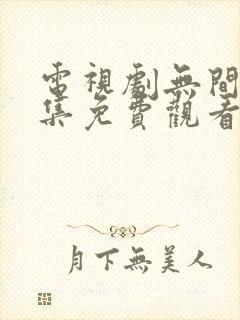 電視劇無間
集免費觀看
月下無美人